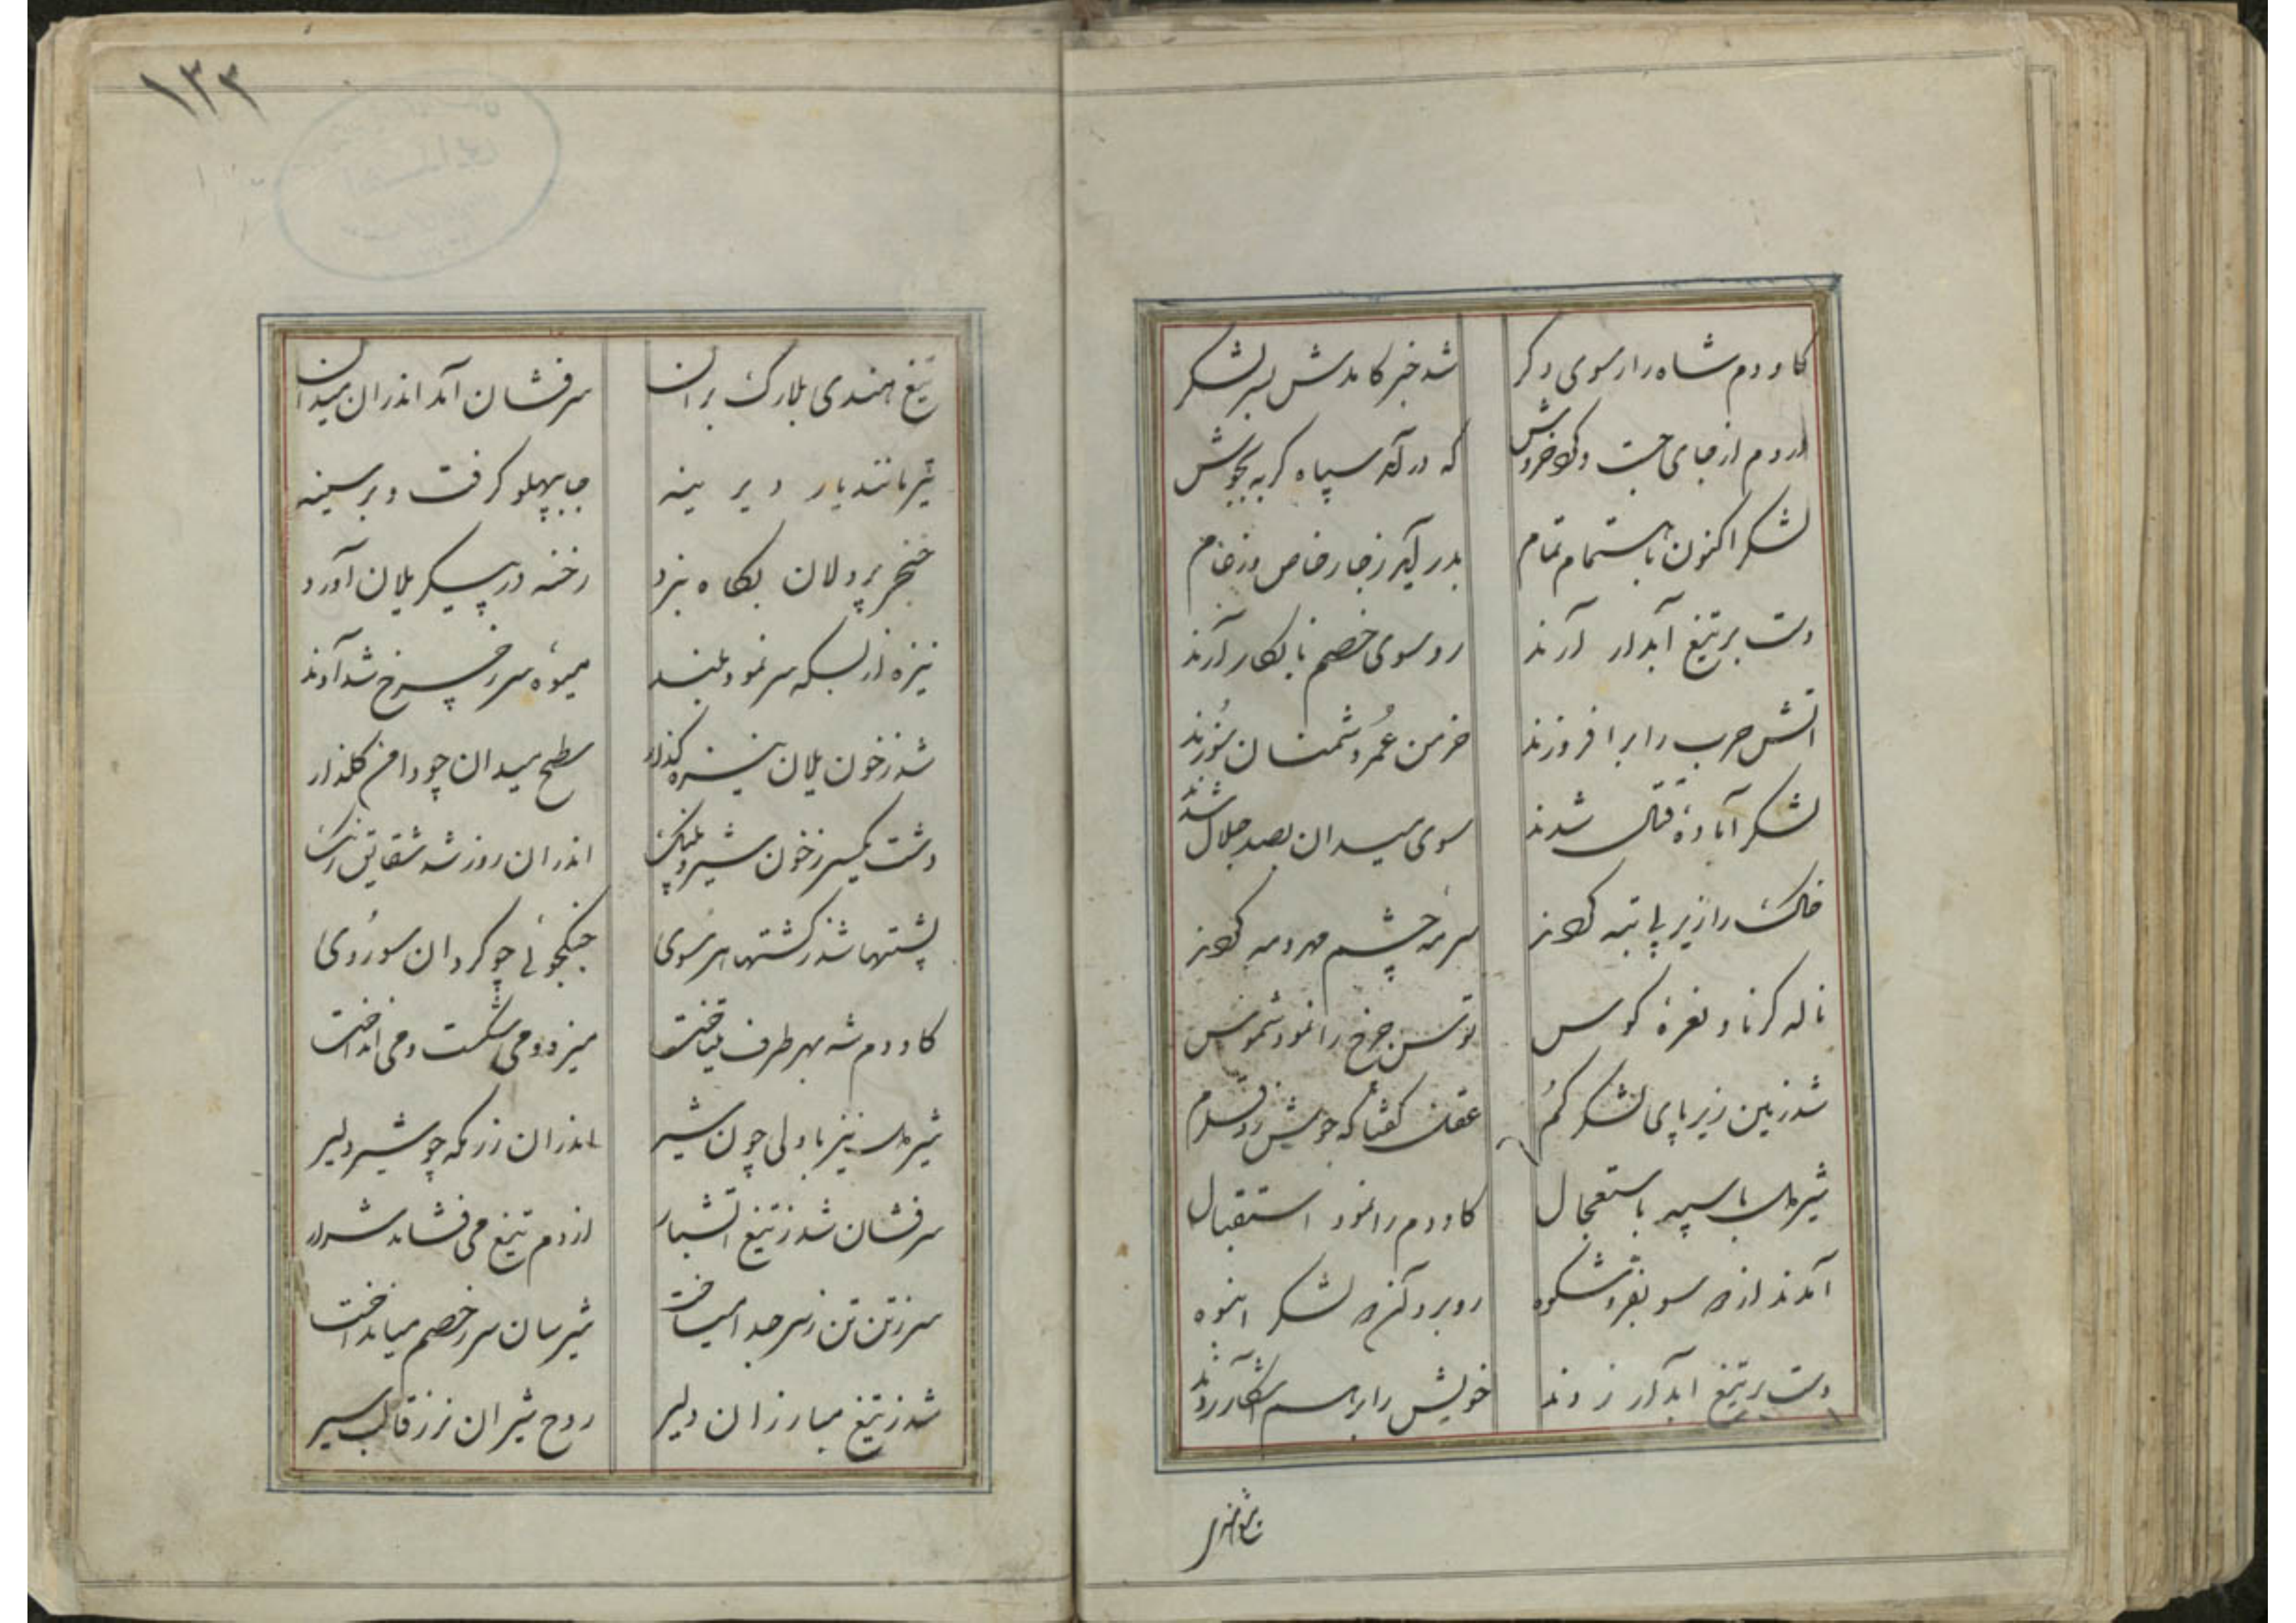 کاودم شاه را ز سوی دگر شد خبر کامدش بسر لشکر
از دم از جای جست و کرد خروش که در آمد سپاه گربه بجوش
لشکر اکنون باهتمام تمام بدر آید ز جا ز خاص و ز عام
دست بر تیغ آبدار آرند رو سوی خصم نابکار آرند
اتش حرب را بر افروزند خرمن عمر دشمنان سوزند
لشکر آماده قتال شدند سوی میدان بصد جلال شدند
خاک را زیر پا تبه کردند سرمه چشم مهر و مه کردند
ناله کرنا و نعره کوس توسن چرخ را نمود شموس
شد زمین زیر پای لشکر کم عقل گفتا که
شیردل با سپه باستعجال کاودم را نمود استقبال
آمدند از دو سو بفر و شکوه روبرو آن دو لشکر انبوه
دست بر تیغ ابدار زدند خویش را بر هم آشکار زدند
تیغ هندی
۱۳۳
تیغ هندی بلارک بران سرفشان آمد اندران میدان
تیر مانند یار دیرینه جا بپهلو گرفت و بر سینه
خنجر پردلان بگاه نبرد رخنه در پیکر یلان آورد
نیزه از بسکه سر نمود بلند میوه سر ز چرخ شد آوند
شد ز خون یلان نیزه گذار سطح میدان چو دامن گلزار
دشت یکسر ز خون شیر و پلنگ اندران روز شد شقایق رنگ
پشتها شد ز کشتها هر سوی جنگجوئی چو کردان سو روی
کاودم شه بهر طرف میتاخت میزد و می شکست و می انداخت
شیردل نیز با دلی چون شیر اندران رزمگه چو شیر دلیر
سرفشان شد ز تیغ اتشبار از دم تیغ می فشاند شرار
سر ز تن تن ز سر جدا میساخت شیرسان سر ز خصم میانداخت
شد ز تیغ مبارزان دلیر روح شیران نر ز قالب سیر